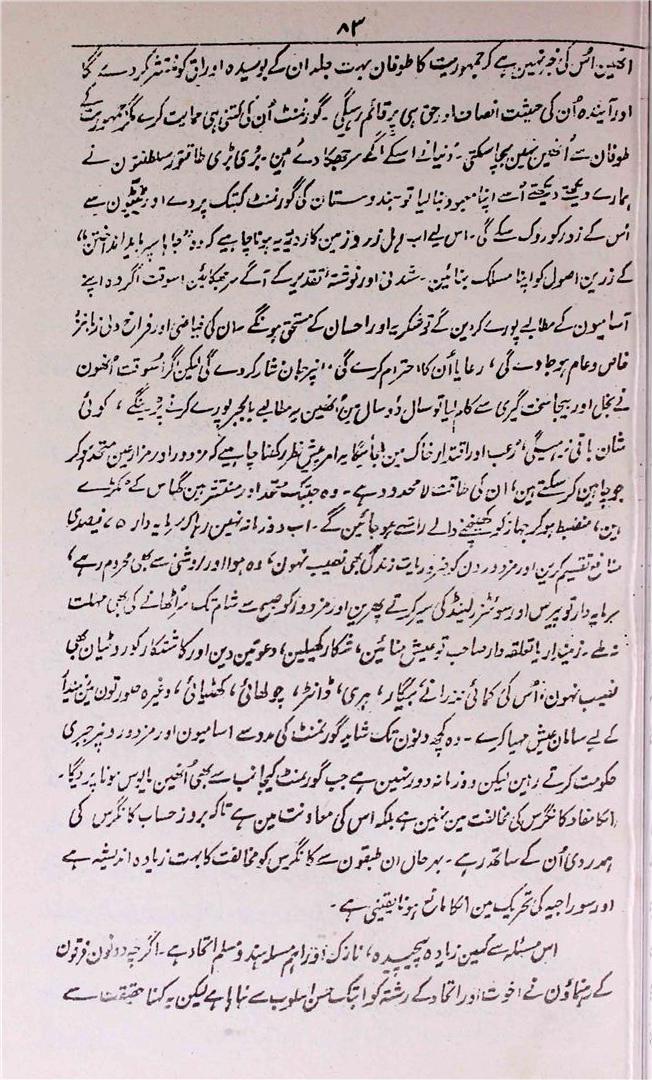 ۸۳
انھین اُس کی خبر نہین ہے کہ جمہوریت کا طوفان بہت جلد ان کے بوسیدہ اوراق کو منتشر کر دے گا
اور آیندہ اُن کی حیثیت انصاف اور حق ہی پر قائم رہیگی ۔ گورنمنٹ اُن کی کتنی ہی حمایت کرے مگر جمہوریت کے
طوفان سے اُنھین نہین بچا سکتی ۔ دُنیا نے اسکے آگے سر جھکا دئے ہین ۔ بڑی بڑی طاقتور سلطنتون نے
ہمارے دیکھتے دیکھتے اُسے اپنا معبود بنا لیا تو ہندوستان کی گورنمنٹ کبتک پردے اور ٹٹیون سے
اُس کے زور کو روک سکے گی ۔ اس لیے اب اہل زر و زمین کا رویہ یہ ہونا چاہیے کہ وہ ”جاہا سپر باید انداختن“
کے زرین اصول کو اپنا مسلک بنائین ۔ شدنی اور نوشتۂ تقدیر کے آگے سر جھکائین ۔ اسوقت اگر وہ اپنے
آسامیون کے مطالبے پورے کر دین گے تو شکریہ اور احسان کے مستحق ہونگے ۔ ان کی فیاضی اور فراخ دلی زبانزد
خاص و عام ہو جاوے گی ، رعایا اُن کا احترام کرے گی ، انپر جان نثار کر دے گی لیکن اگر اسوقت اُنھون
نے بخل اور بیجا سخت گیری سے کام لیا تو سال دو سال مین اُنھین یہ مطالبے بالجبر پورے کرنے پڑینگے ، کوئی
شان باقی نہ رہیگی ، رعب اور اقتدار خاک مین مل جائیگا یہ امر پیش نظر رکھنا چاہیے کہ مزدور اور مزارعین متحد ہو کر
جو چاہین کر سکتے ہین ، ان کی طاقت لا محدود ہے ۔ وہ جبتک متعدد اور منتشر ہین گھاس کے ٹکڑے
ہین ، منضبط ہو کر جہاز کو کھینچنے والے رسے ہو جائین گے ۔ اب وہ زمانہ نہین رہا کہ سرمایہ دار ۷۵ فیصدی
منافع تقسیم کرین اور مزدورون کو ضروریات زندگی بھی نصیب نہون ، وہ ہوا اور روشنی سے بھی محروم رہے ،
سرمایہ دار تو پیرس اور سوئٹزرلینڈ کی سیر کرتے پھرین اور مزدور کو صبح سے شام تک سر اُٹھانے کی بھی مہلت
نہ ملے ۔ زمیندار یا تعلقہ دار صاحب تو عیش منائین ، شکار کھیلین ، دعوتین دین اور کاشتکار کو روٹیان بھی
نصیب نہون ، اُس کی کمائی نذرانے ، بیگار ، ہری ، ڈانڈ ، چولھائی ، کھٹیائی ، وغیرہ صورتون مین زمیندار
کے لیے سامان عیش مہیا کرے ۔ وہ کچھ دنون تک شاید گورنمنٹ کی مدد سے اسامیون اور مزدورونپر جبری
حکومت کرتے رہین لیکن وہ زمانہ دور نہین ہے جب گورنمنٹ کیجانب سے بھی اُنھین مایوس ہونا پڑیگا ۔
انکا مفاد کانگرس کی مخالفت مین نہین ہے بلکہ اس کی معاونت مین ہے تاکہ بروز حساب کانگرس کی
ہمدردی اُن کے ساتھ رہے ۔ بہر حال ان طبقون سے کانگرس کو مخالفت کا بہت زیادہ اندیشہ ہے
اور سوراجیہ کی تحریک مین انکا مانع ہونا یقینی ہے ۔
اس مسئلہ سے کہین زیادہ پیچیدہ ، نازک اور اہم مسئلہ ہندو مسلم اتحاد ہے ۔ اگرچہ دونون فرقون
کے رہنماؤن نے اخوت اور اتحاد کے رشتہ کو ابتک حسن اسلوب سے نباہا ہے لیکن یہ کہنا حقیقت سے